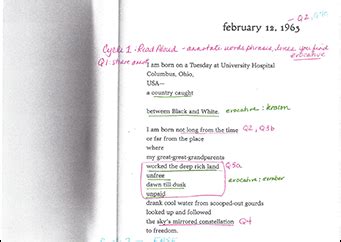 february 12, 1963
Q2,
Cycle 1 - Read Aloud - annotate words, phrases, lines you find
evocative
Q1: share out
I am born on a Tuesday at University Hospital
Columbus, Ohio,
USA—
a country caught
between Black and White. evocative:
I am born not long from the time Q2, Q3b
or far from the place
where
my great-great-grandparents
worked the deep rich land Q3a
unfree
dawn till dusk evocative:
unpaid
drank cool water from scooped-out gourds
looked up and followed
the sky's mirrored constellation Q4
to freedom.